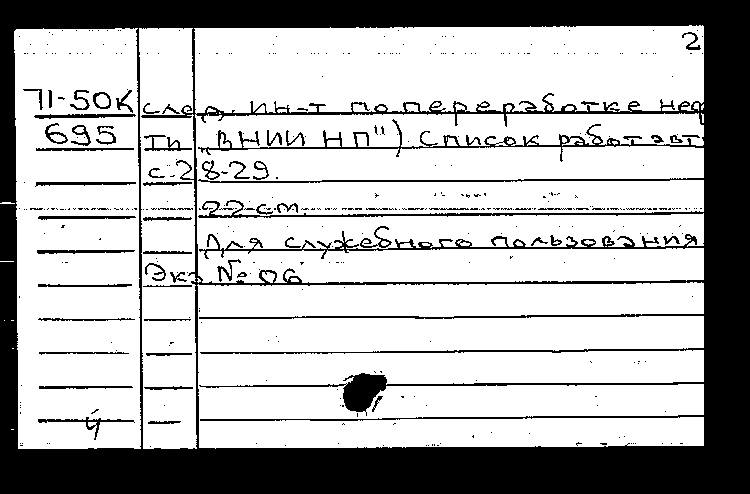 2
71-50К след. ин-т по переработке неф
695 ти „ВНИИ НП") Список работ авт
с. 28-29.
22 см.
Для служебного пользования
Экз. № 06